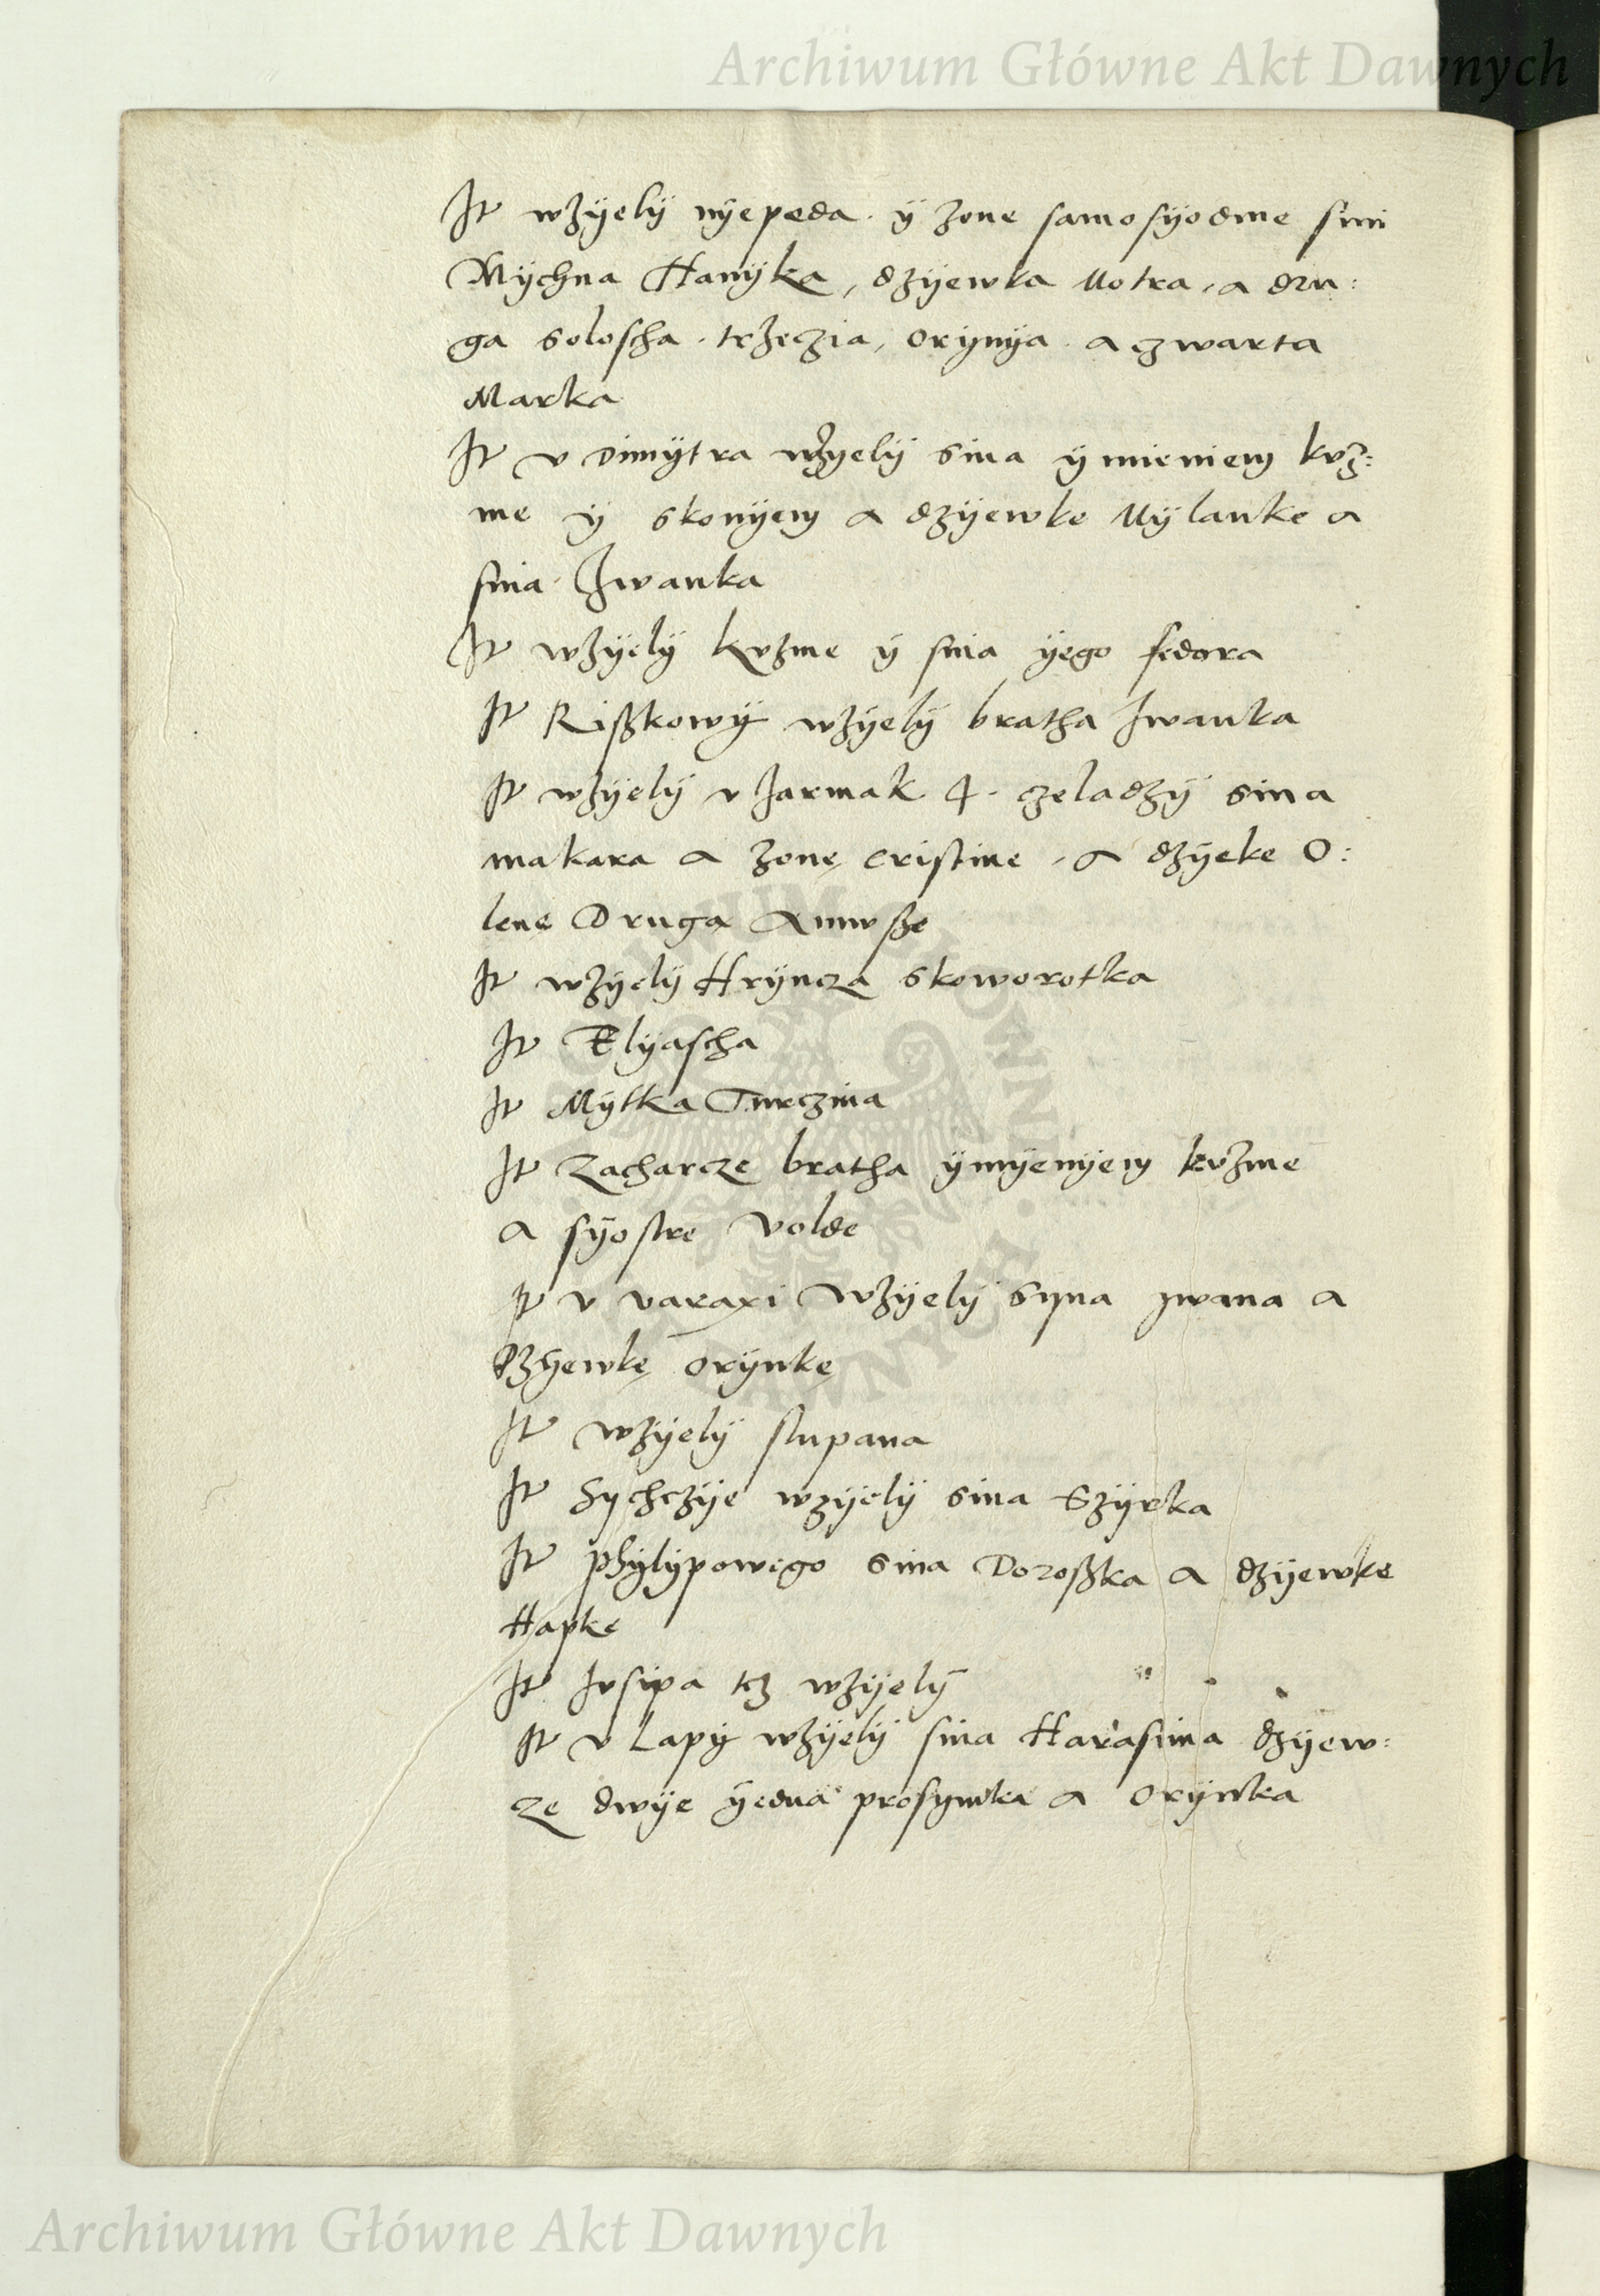 Archiwum Główne Akt Dawnych
It wzÿelÿ nÿepeda. ÿ zone samosÿodme sini
Mÿchna Hanÿka, dzÿewka Motra, a dru:
ga soloscha. trzeczia, orÿnÿa. a czwarta
Marka
It v dimÿtra wzÿelÿ sina ÿmieniem kvz:
me ÿ skonÿem a dzÿewke Mÿlanke a
sina Iwanka
It wzÿelÿ kvzme ÿ sina ÿego fedora
It Rißkowÿ wzÿelÿ bratha Iwanka
It wzÿelÿ v Jarmak 4. czeladzÿ sina
makara a zonę cristine, a dzÿeke O:
lene Druga Annvsze
It wzÿelÿ Hrÿncza skoworotka
It Elÿascha
It Mÿtka Turczina
It Zacharcze bratha ÿmÿenÿem kvzme
a sÿostre volde
It v varaxi wzÿelÿ syna ywana a
dzÿewkę orÿnkę
It wzÿelÿ stupana
It Sychczÿe wzÿelÿ sina Szÿrka
It phÿlÿpowego sina Doroßka a dzÿewke
Hapke
It Jvsipa tez wzÿelÿ
It v Lapÿ wzÿelÿ sina Harasima dzÿew:
ze dwÿe ÿedna prosymka a orÿnka
Archiwum Główne Akt Dawnych